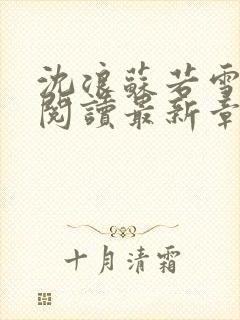 沈浪蘇若雪
閱讀最新章
十月清霜